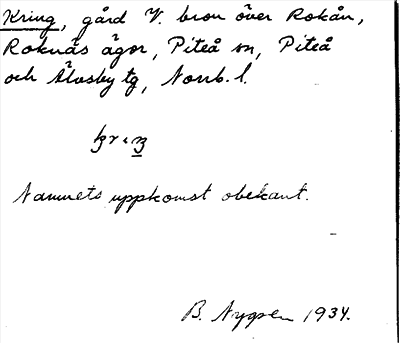 Kring, gård V. bron över Rokån,
Roknäs ägor, Piteå sn, Piteå
och Älvsby tg, Norrb. l.
Namnets uppkomst obekant.
B. Nygren 1934.